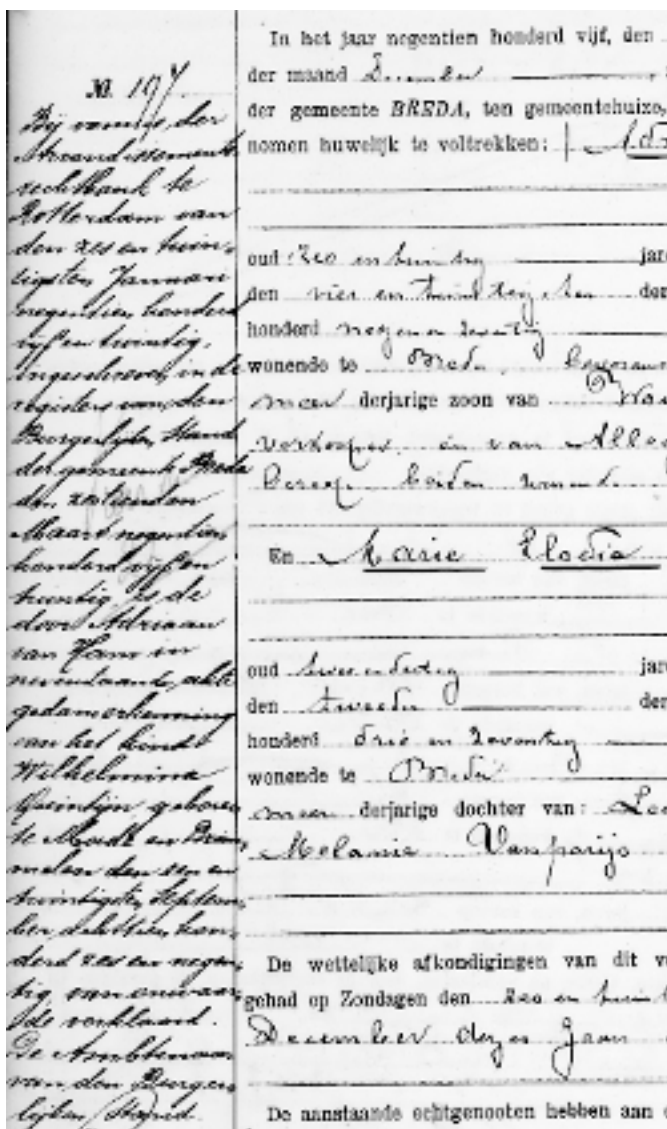 № 197
Bij vonnis der
Arrondissements
rechtbank te
Rotterdam van
den zes en twin-
tigsten Januari
negentien honderd
vijf en twintig,
ingeschreven in de
registers van den
Burgerlijken Stand
der gemeente Breda
den zestienden
Maart negentien
honderd vijf en
twintig is de
door Adriaan
van Ham in
nevenstaande akte
gedane erkenning
van het kind
Wilhelmina
Quintijn geboren
te en
den zes en
twintigsten Septem
ber achttien hon-
derd zes en negen
tig van onwaar
de verklaard.
De Ambtenaar
van den Burger
lijken Stand.
In het jaar negentien honderd vijf, den
der maand December
der gemeente BREDA, ten gemeentehuize,
nomen huwelijk te voltrekken:
oud zes en twintig jare
den vier en twintigsten der
honderd negen en zeventig
wonende te Breda,
meer derjarige zoon van
verkooper, en van
beroep beiden wonende
En Marie Elodia
oud twee en dertig jare
den tweeden der
honderd drie en zeventig
wonende te Breda
meer derjarige dochter van: Leo
Melanie Vanparijs
De wettelijke afkondigingen van dit v
gehad op Zondagen den zes en twint
December dezes Jaars
De aanstaande echtgenooten hebben aan